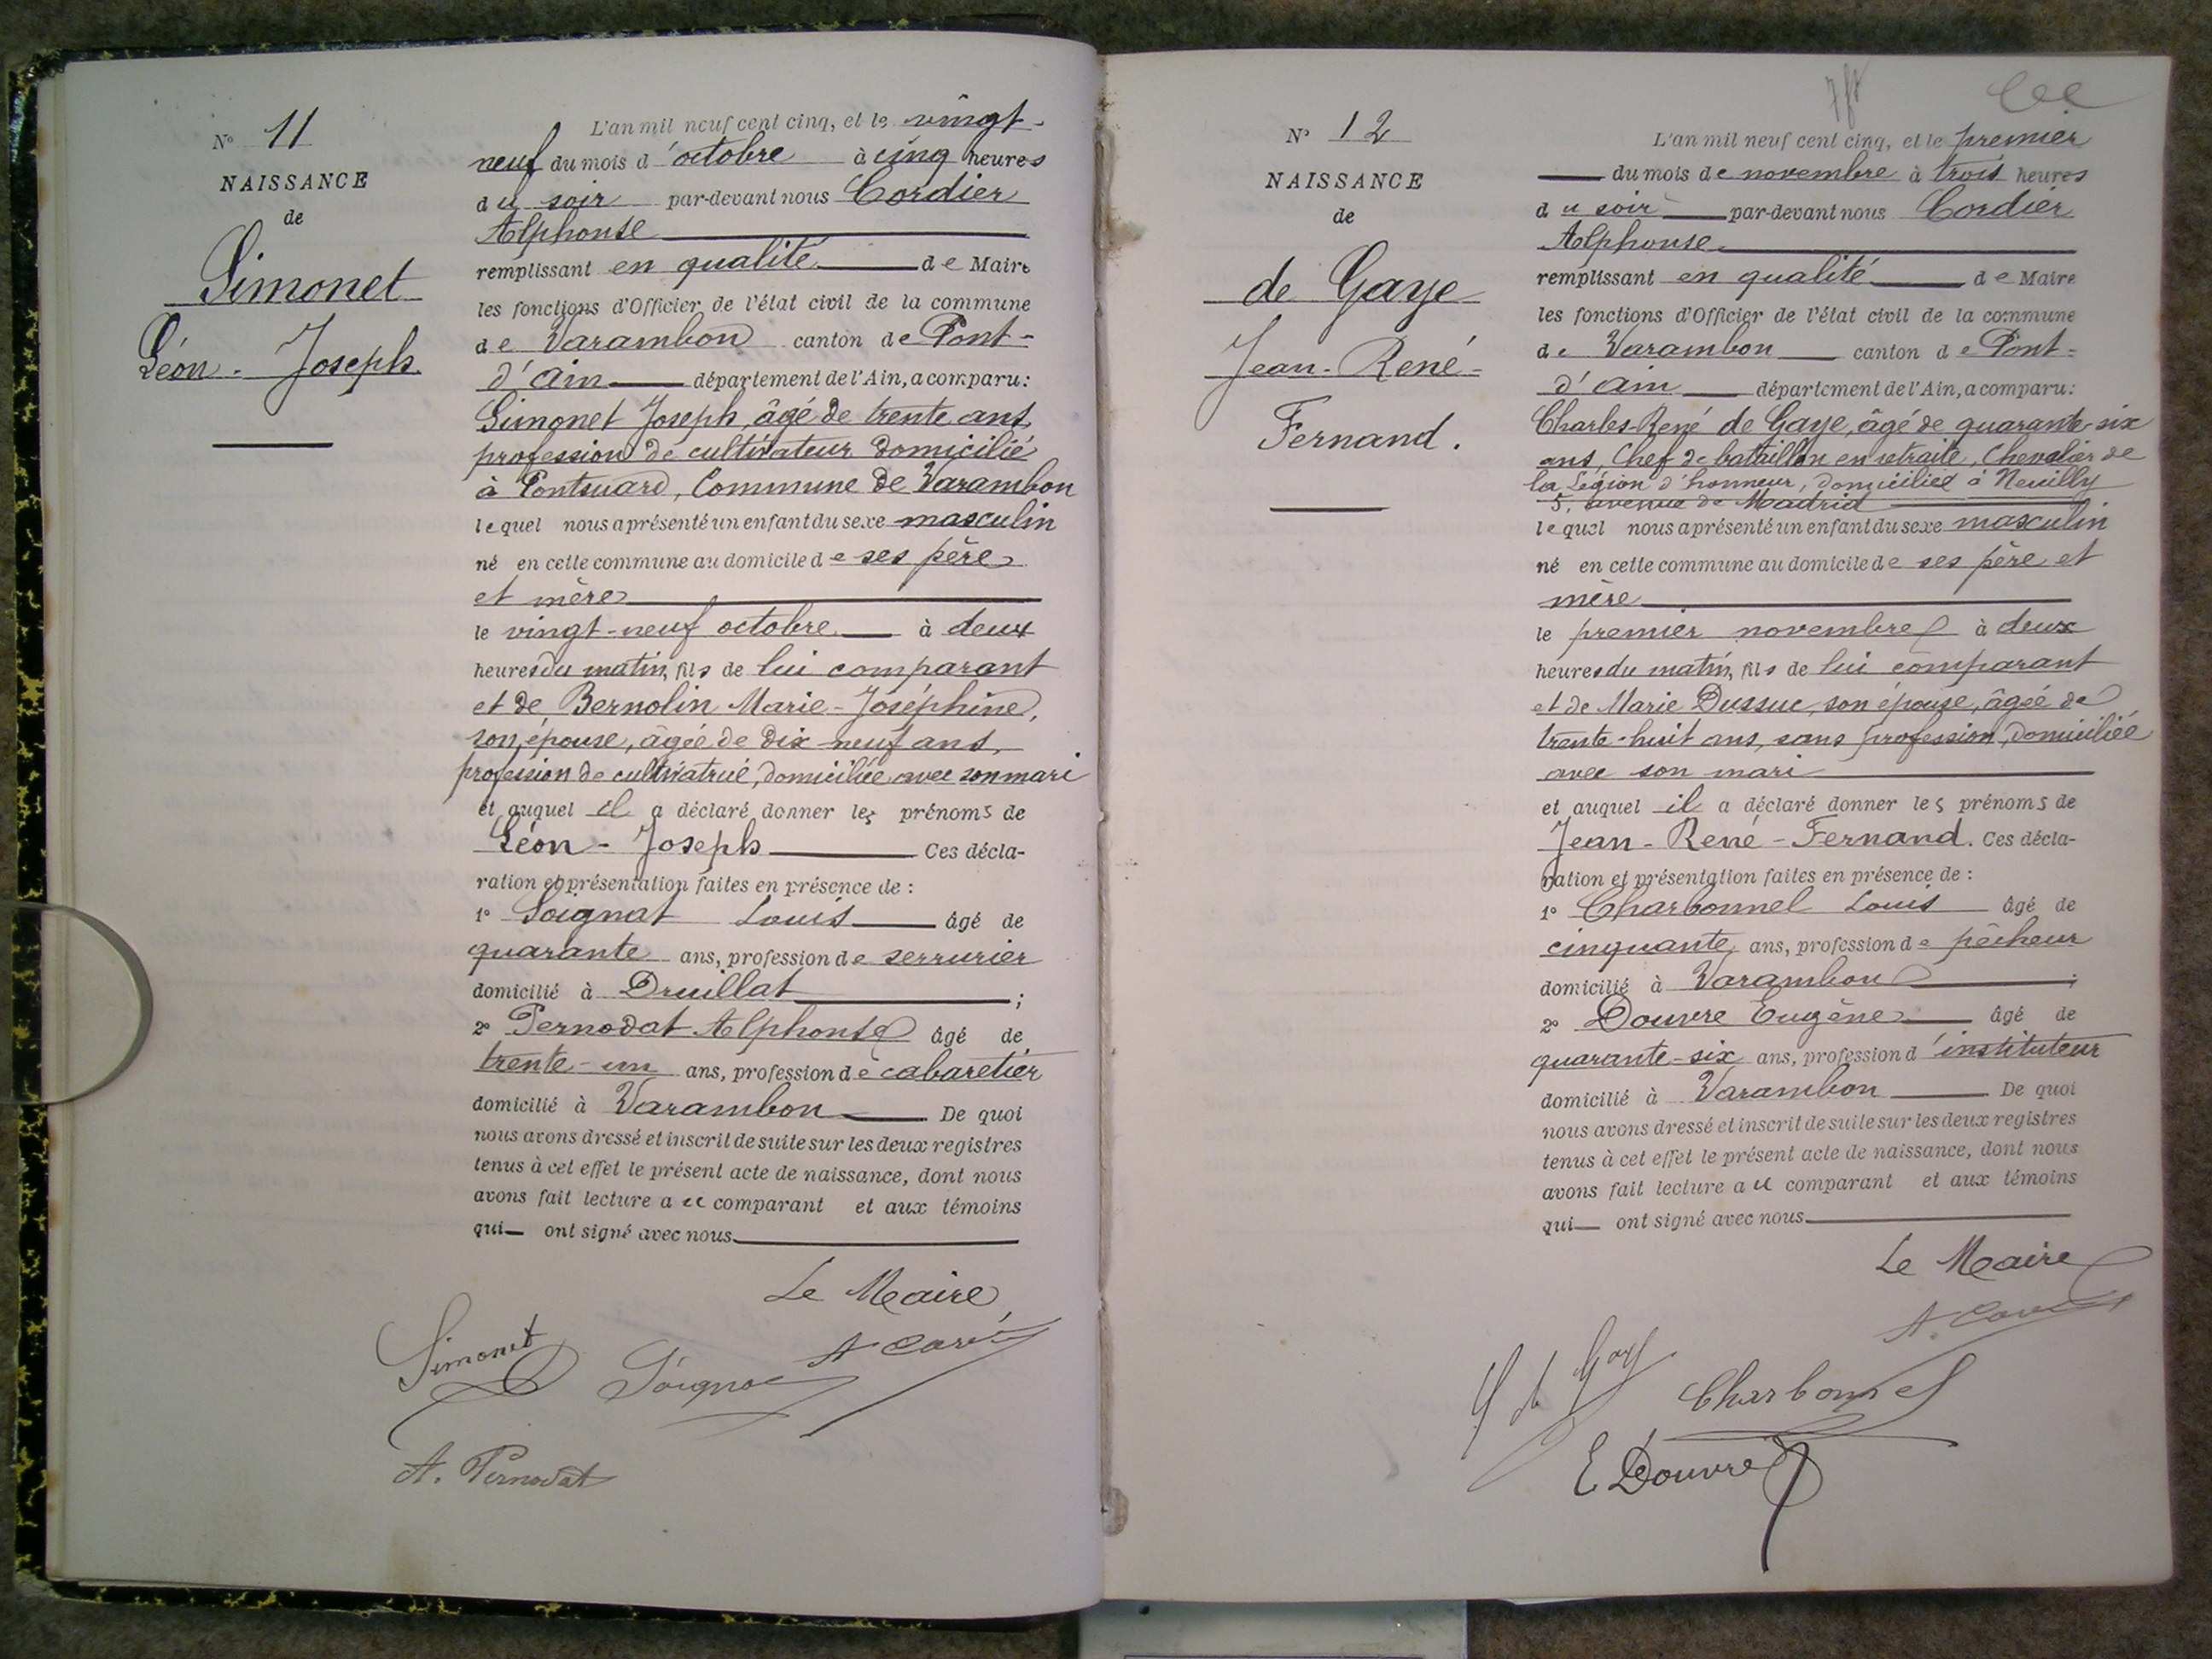 N° 11
NAISSANCE
de
Simonet
Léon-Joseph
L'an mil neuf cent cinq, et le vingt-
neuf du mois d'octobre à cinq heures
du soir par-devant nous Cordier
Alphonse
remplissant en qualité de Maire
les fonctions d'Officier de l'état civil de la commune
de Varambon canton de Pont-
d'Ain département de l'Ain, a comparu:
Simonet Joseph, âgé de trente ans,
profession de cultivateur domicilié
à Pontsuard, Commune de Varambon
lequel nous a présenté un enfant du sexe masculin
né en cette commune au domicile de ses père
et mère
le vingt-neuf octobre à deux
heures du matin, fils de lui comparant
et de Bernolin Marie-Joséphine,
son épouse, âgée de dix-neuf ans,
profession de cultivatrice, domiciliée avec son mari
et auquel il a déclaré donner les prénoms de
Léon-Joseph Ces décla-
ration et présentation faites en présence de :
1° Soignat Louis âgé de
quarante ans, profession de serrurier
domicilié à Druillat ;
2° Pernodat Alphonse âgé de
trente-un ans, profession de cabaretier
domicilié à Varambon De quoi
nous avons dressé et inscrit de suite sur les deux registres
tenus à cet effet le présent acte de naissance, dont nous
avons fait lecture au comparant et aux témoins
qui ont signé avec nous
Le Maire
Simonet
A. Pernodat
N° 12
NAISSANCE
de
de Gaye
Jean-René-
Fernand.
L'an mil neuf cent cinq, et le premier
du mois de novembre à trois heures
du soir par-devant nous Cordier
Alphonse
remplissant en qualité de Maire
les fonctions d'Officier de l'état civil de la commune
de Varambon canton de Pont-
d'Ain département de l'Ain, a comparu:
Charles-René de Gaye, âgé de quarante-six
ans, Chef de bataillon en retraite, Chevalier de
la Légion d'honneur, domicilié à Neuilly
5, avenue de Madrid
lequel nous a présenté un enfant du sexe masculin
né en cette commune au domicile de ses père et
mère
le premier novembre à deux
heures du matin, fils de lui comparant
et de Marie Dussuc, son épouse, âgée de
trente-huit ans, sans profession, domiciliée
avec son mari
et auquel il a déclaré donner les prénoms de
Jean-René-Fernand. Ces décla-
ration et présentation faites en présence de :
1° Charbonnel Louis âgé de
cinquante ans, profession de pêcheur
domicilié à Varambon ;
2° Douvre Eugène âgé de
quarante-six ans, profession d'instituteur
domicilié à Varambon De quoi
nous avons dressé et inscrit de suite sur les deux registres
tenus à cet effet le présent acte de naissance, dont nous
avons fait lecture au comparant et aux témoins
qui ont signé avec nous
Le Maire
Charbonnel
E Douvre